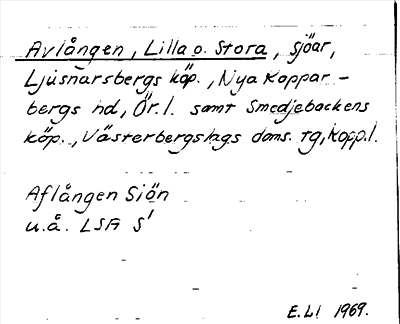 Avlången, Lilla o. Stora, sjöar,
Ljusnarsbergs köp., Nya Koppar-
bergs hd, Ör. l. samt Smedjebackens
köp., Västerbergslags doms. tg, Kopp. l.
Aflången Siön
u.å. LSA S1
E.LI 1969.